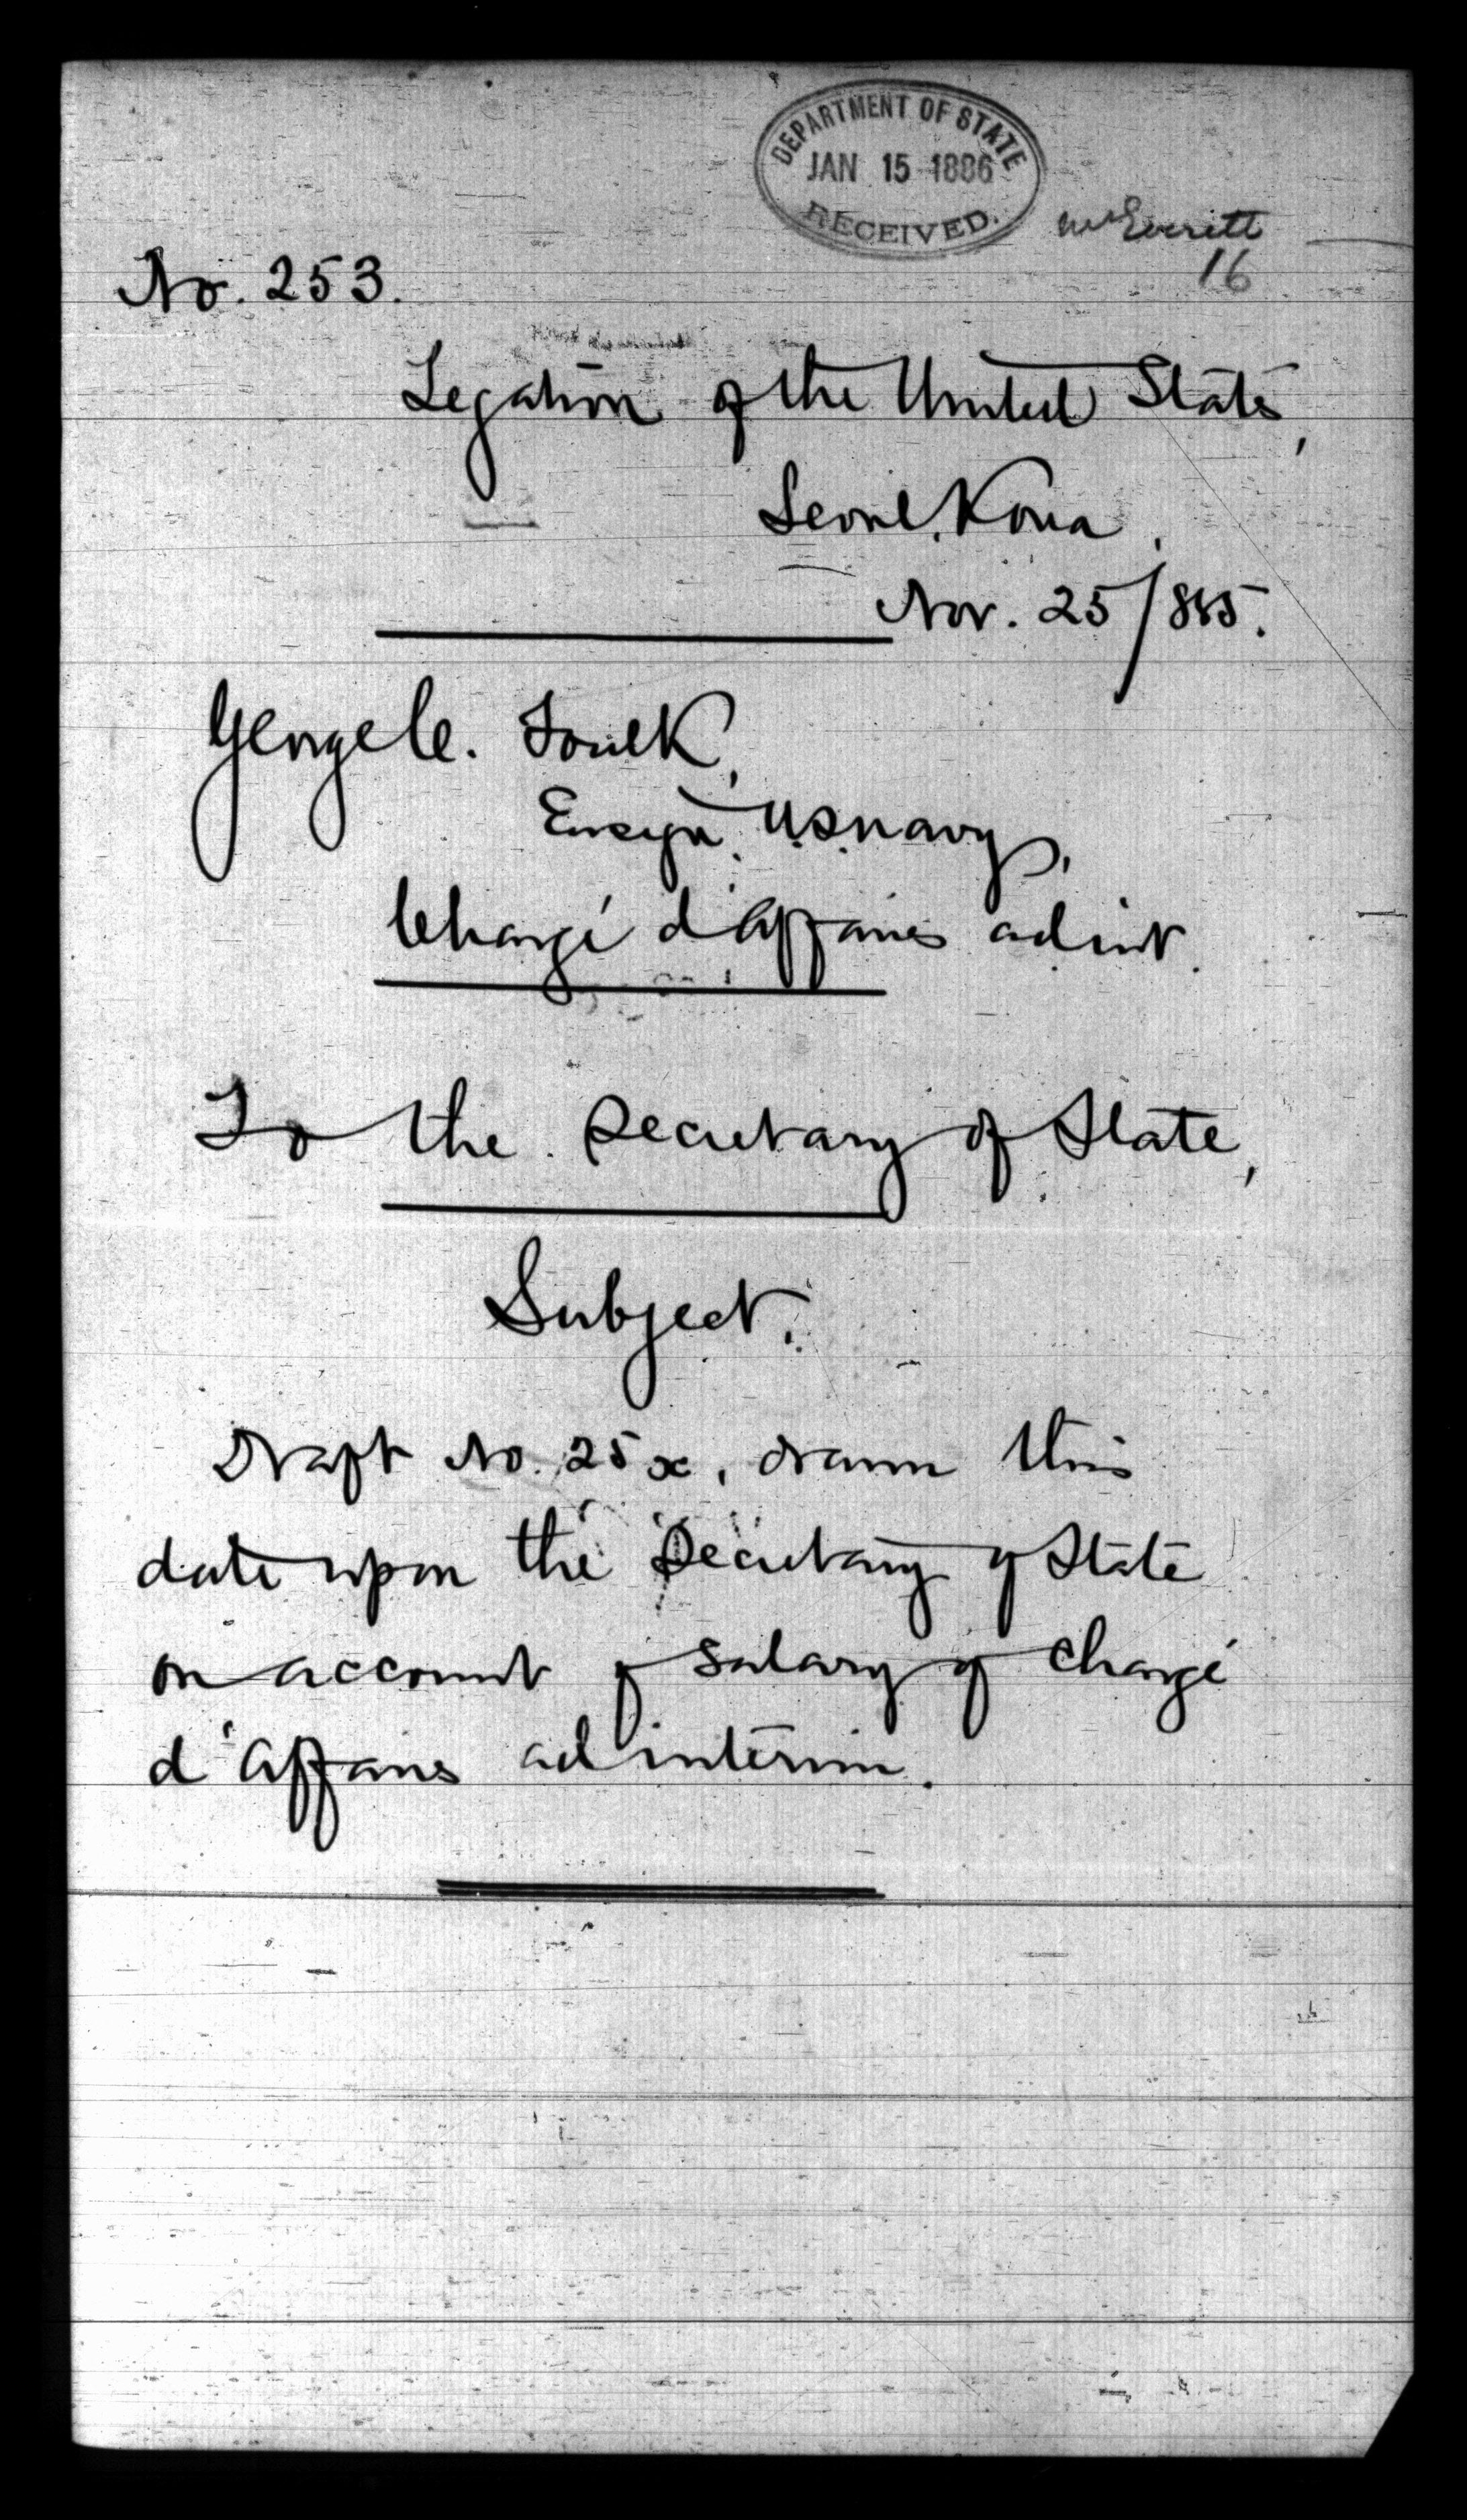 DEPARTMENT OF STATE
JAN 15 1886
RECEIVED.
Mr Everett
16
No. 253.
Legation of the United States,
Seoul, Korea,
Nov. 25/885.
George C. Foulk,
Ensign, U.S. Navy,
Chargé d'Affaires ad int.
To the Secretary of State,
Subject.
Draft No. 25 x, drawn this
date upon the Secretary of State
on account of salary of Chargé
d'Affaires ad interim.